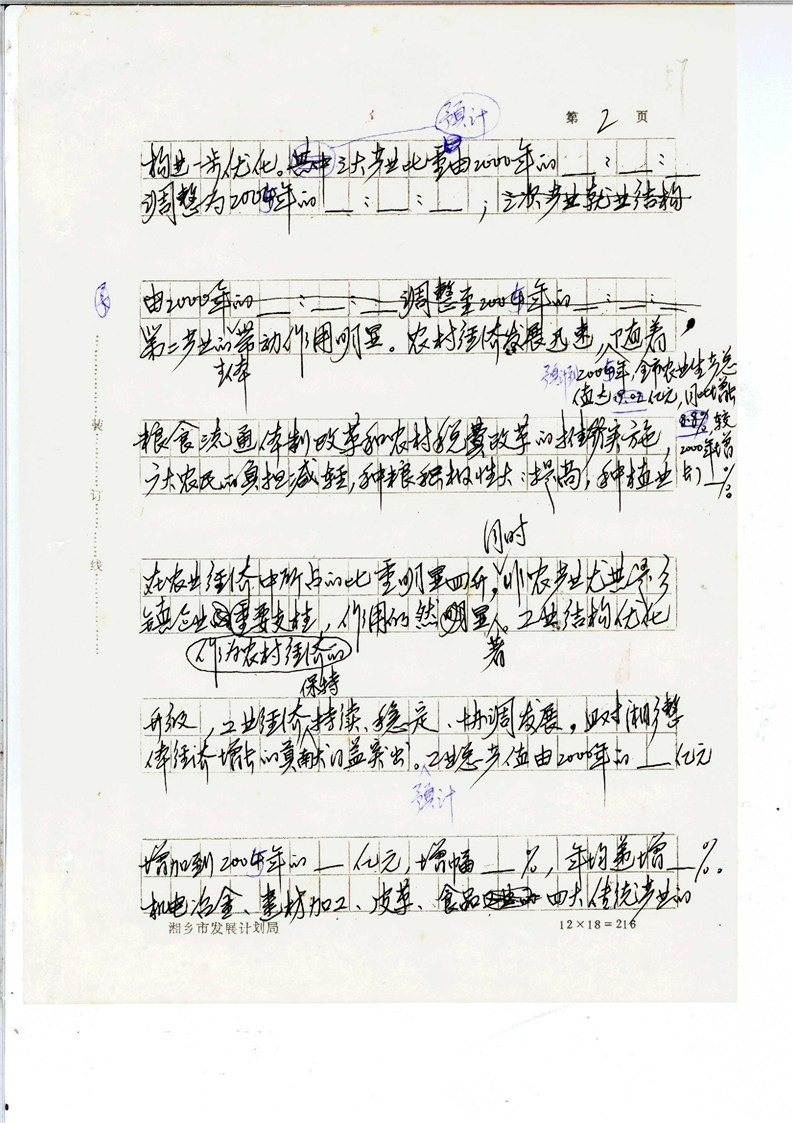 第 2 页
预计
构进一步优化。三大产业比重由2000年的__:__:__
调整为2005年的__:__:__;三次产业就业结构
由2000年的__:__:__调整至2005年的__:__:__
第二产业的带动作用明显。农村经济发展迅速,随着
主体
预计2005年,全市农业生产总
值达 亿元,同比增长
8.8%,较
2000年增
长__%
粮食流通体制改革和农村税费改革的推行实施,
广大农民的负担减轻,种粮积极性大大提高,种植业
同时
在农业经济中所占的比重明显回升,非农产业尤其是乡
镇企业重要支柱,作用仍然明显。工业结构优化
作为农村经济的
著
保持
升级,工业经济持续、稳定、协调发展,对湘乡整
体经济增长的贡献日益突出。工业总产值由2000年的__亿元
预计
增加到2005年的__亿元,增幅__%,年均递增__%。
机电冶金、建材加工、皮革、食品四大传统产业的
装
订
线
湘乡市发展计划局
12×18=216